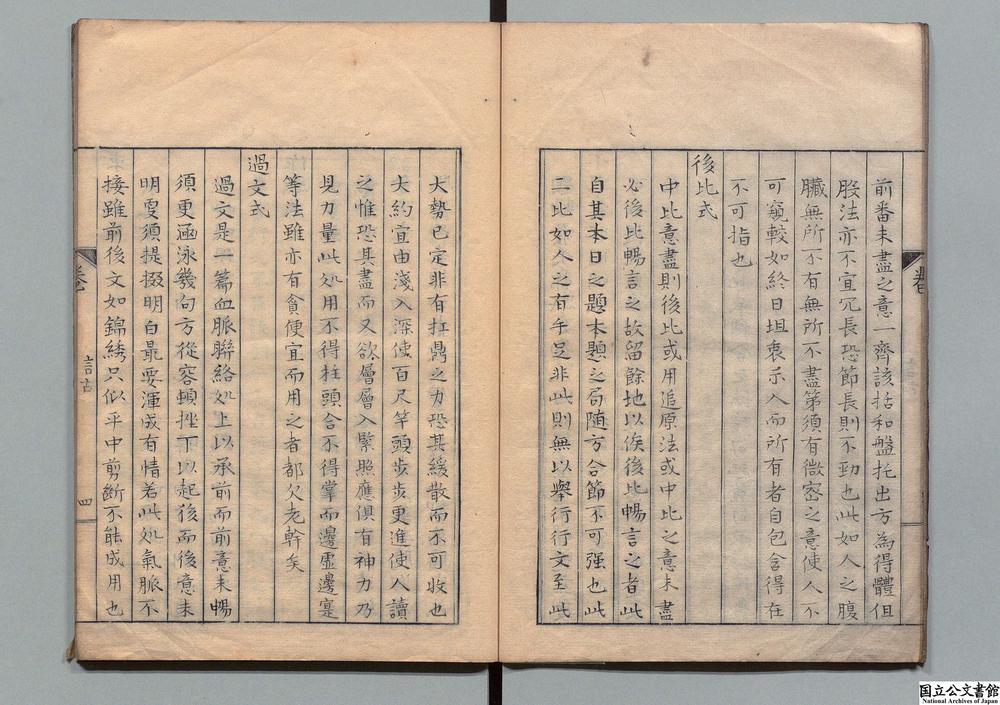 前番未盡之意一齊該括和盤托出方為得體但
股法亦不宜冗長恐節長則不勁也此如人之腹
臟無所不有無所不盡第須有微密之意使人不
可窺較如終日坦衷示人而所有者自包含得在
不可指也
後比式
中比意盡則後比或用追原法或中比之意未盡
必後比暢言之故留餘地以俟後比暢言之者此
自其本日之題本題之局随方合節不可强也此
二比如人之有手足非此則無以舉行行文至此
大勢已定非有扛鼎之力恐其緩散而不可收也
大約宜由淺入深使百尺竿頭步步更進使人讀
之惟恐其盡而又欲層層入緊照應俱有神力乃
見力量此処用不得柱頭合不得掌而邊虛邊寔
等法雖亦有貪便宜而用之者都欠老幹矣
過文式
過文是一篇血脈聯絡処上以承前而前意未暢
須更涵泳幾句方從容頓挫下以起後而後意未
明要須提掇明白最要渾成有情若此処氣脈不
接雖前後文如錦綉只似平中剪斷不能成用也
四
国立公文書館
National Archives of Japan